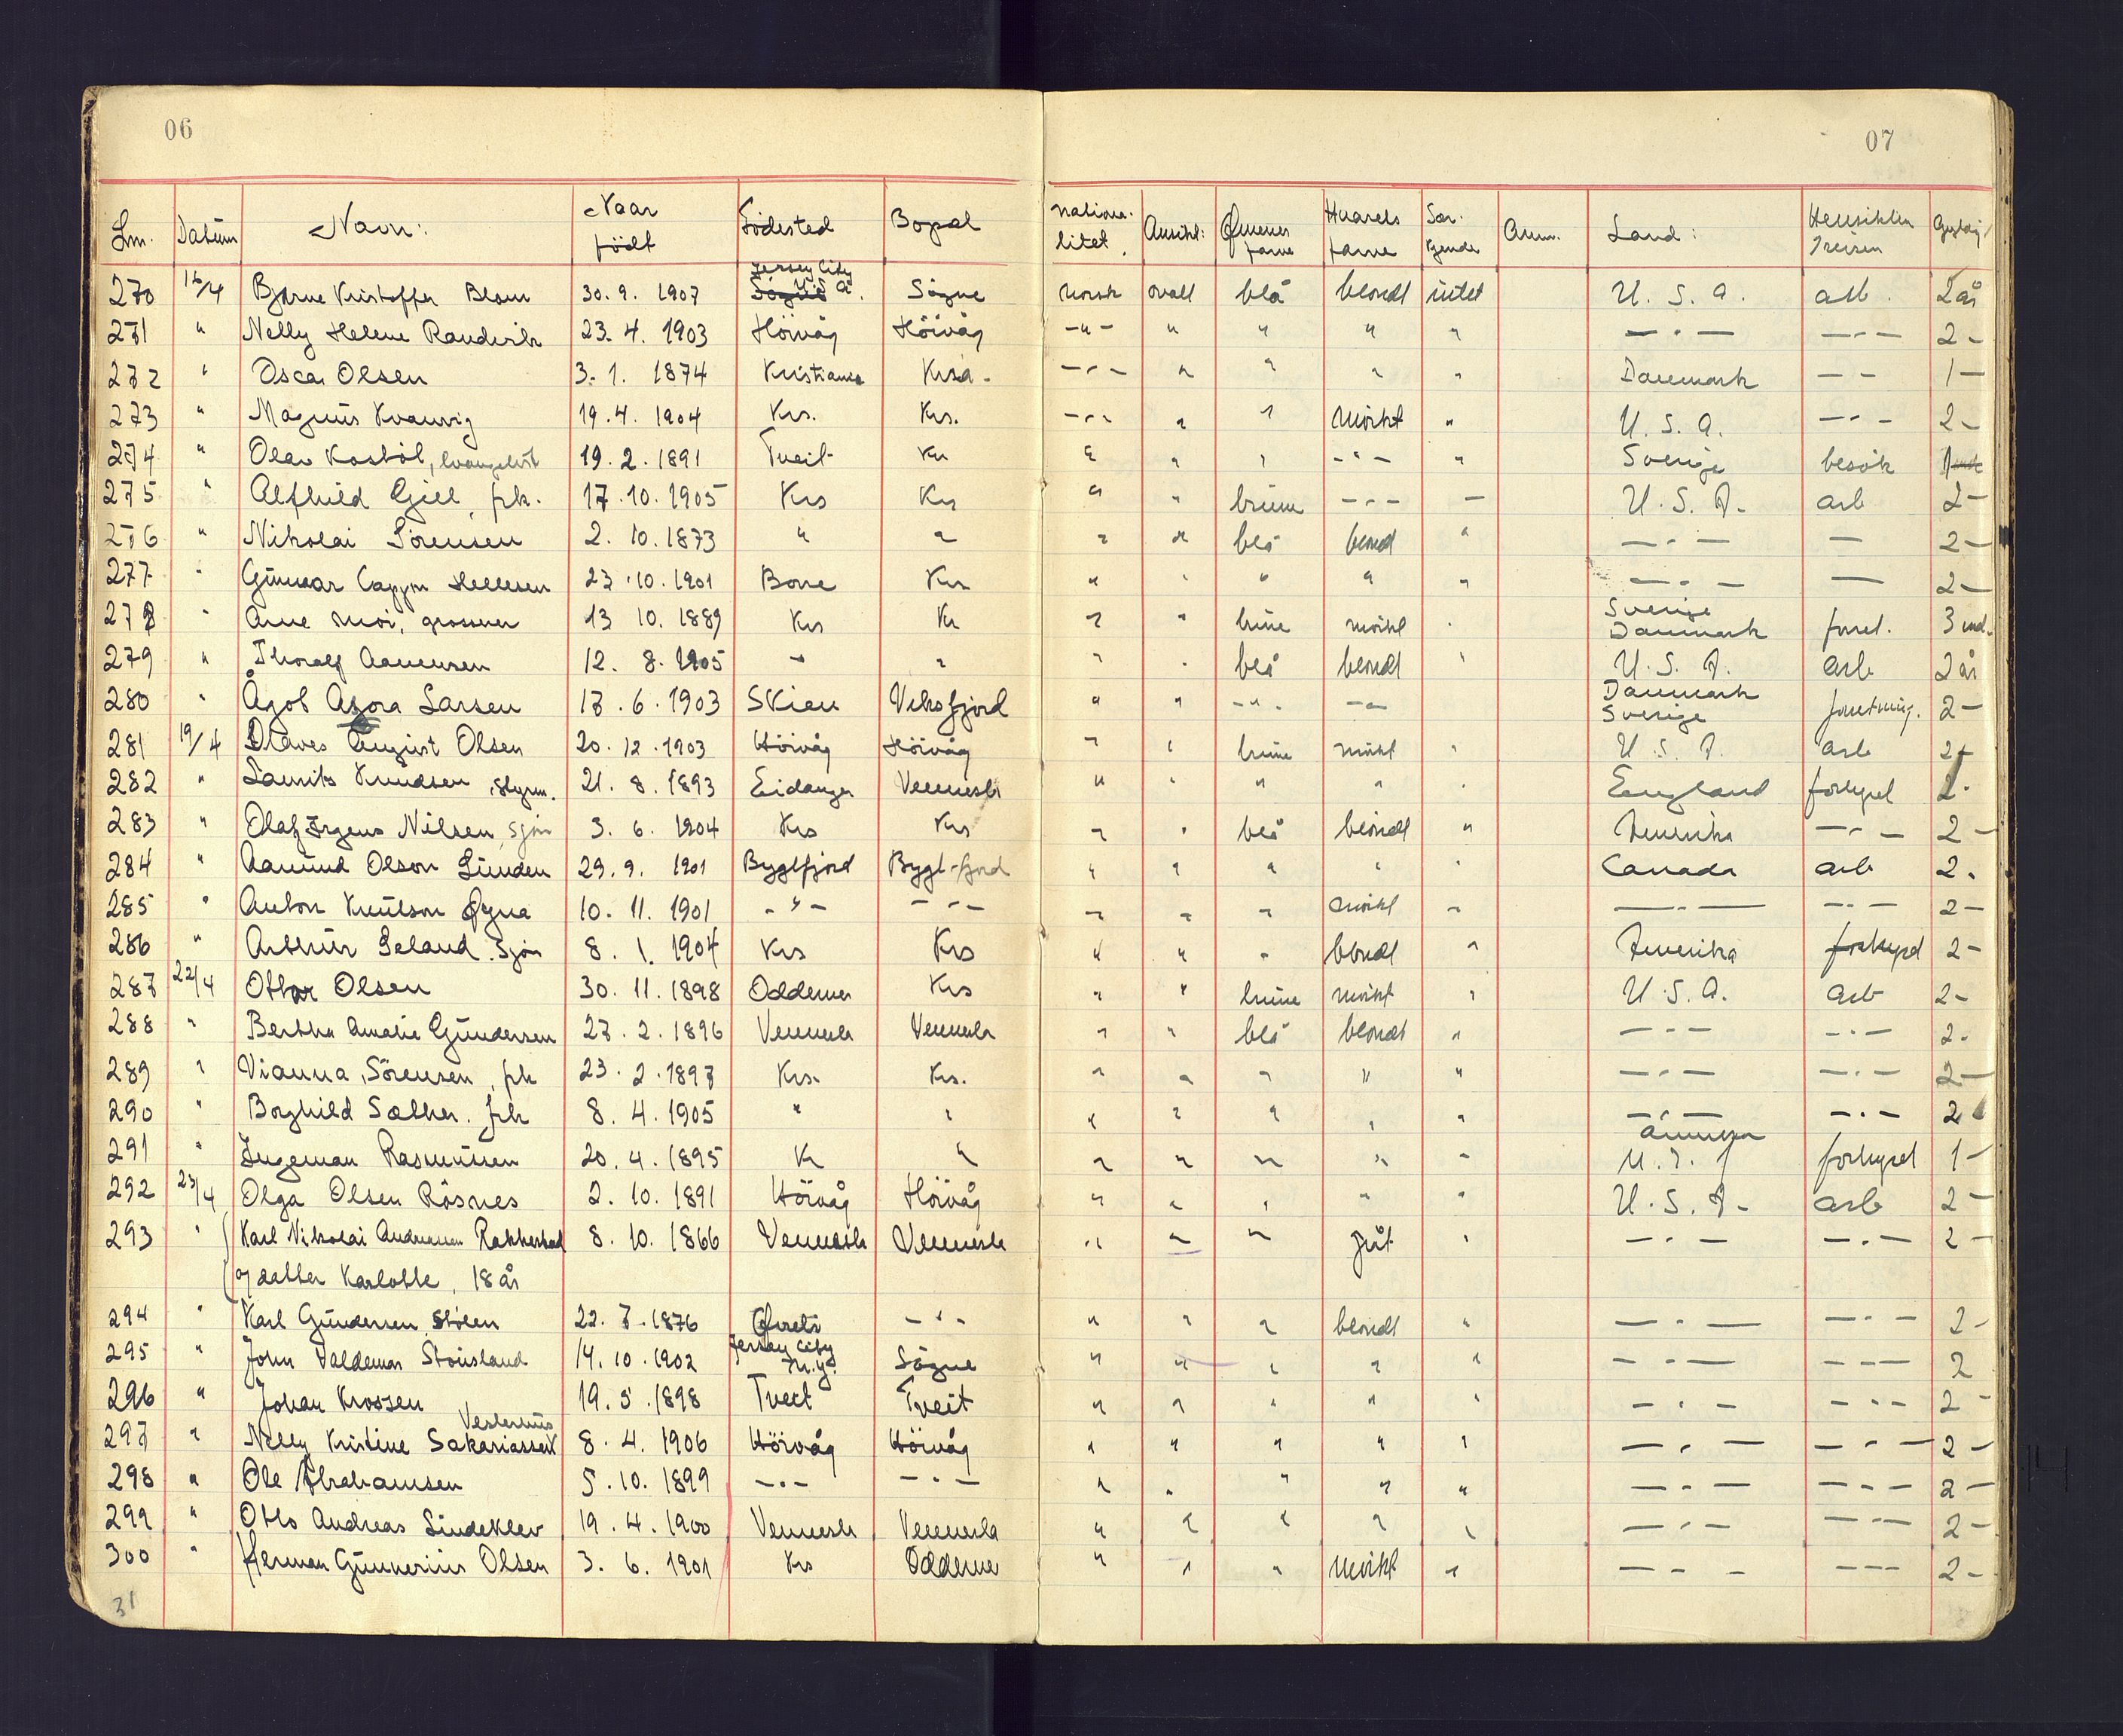 06
07
Lnr. Datum Navn: Naar födt Födested Bopæl Nationalitet. Ansikt: Öinenes farve Haarets farve Særkjende Anm. Land: Hensikten Reisen
270 16/4 Bjarne Kristoffer Blom 30. 9. 1907 Jersey City U.S.A. Søgne norsk ovalt blå blondt intet U. S. A. arb. 2 år
271 " Nelly Helene Randvik 23. 4. 1903 Höivåg Höivåg -"- " " " " — " — — " — 2 -
272 " Oscar Olsen 3. 1. 1874 Kristiania Krsa. - " - " " " " Danmark — — 1 —
273 " Magnus Kvanvig 19. 4. 1904 Krs. Krs. - " - " " mörkt " U. S. A. — " — 2 -
274 " Olav Kostöl, evangelist 19. 2. 1891 Tveit Kr " " " - " - " Sverige besök
275 " Alfhild Gjell, frk. 17. 10. 1905 Krs Krs " " brune - " - — U. S. A. arb 2 -
276 " Nikolai Sörensen 2. 10. 1873 " " " " blå blond " — " — — 2 —
277 " Gunnar Hellesen 23. 10. 1901 Krs " " " " " — " — — 2 —
278 " Arne Moi, grosserer 13 10. 1889 Krs Kr " " brune mörkt " Sverige Danmark forret. 3 md.
279 " Thoralf Aanensen 12. 8. 1905 " " " " blå blondt " U. S. A. arb 2 år
280 " Ågot Asora Larsen 17. 6. 1903 Skien " " - " - - " - Danmark Sverige forretning. 2 —
281 19/4 August Olsen 20. 12. 1903 Höivåg Höivåg " " brune mörkt " U. S. A. arb 2 -
282 " Laurits Knudsen, styrm. 21. 8. 1893 Eidanger Vennesla " " " " " England forhyret 2 -
283 " Olaf Jrgens Nilsen, sjöm 3. 6. 1904 Krs Krs " " blå blondt " Amerika — " — 2 -
284 " Aamund Olson Lunden 29. 9. 1901 Byglfjord Bygl-fjord " " " " " Canada arb 2 -
285 " Anton Knutson 10. 11. 1901 - " - - " - " " " mörkt " — " — — " — 2 —
286 " Arthur Leland. Sjöm 8. 1. 1904 Krs Krs " " " blondt " Amerika forhyred 2 -
287 22/4 Othar Olsen 30. 11. 1898 Oddernes Krs " " brune mörkt " U. S. A. arb 2 -
288 " Bertha Amalie Gundersen 27. 2. 1896 Vennesla Vennesla " " blå blondt " — " — — " — 2 -
289 " Vianna Sörensen, frk 23. 2. 1897 Krs. Krs. " " " " " — " — — " — 2 —
290 " Borghild Sæther. frk 8. 4. 1905 " " " " " " " — " — — " — 2
291 " Ingeman Rasmussen 20. 4. 1895 K " " " " " " forhyret 1 -
292 23/4 Olga Olsen Rösnes 2. 10. 1891 Höivåg Höivåg " " " " " U. S. A. arb 2 -
293 " Karl Nikolai Andreassen Rakkestad 8. 10. 1866 Vennesla Vennesla " " " gråt " — " — — " — 2 -
og datter Karlotte, 18 år
294 " Karl Gundersen Stölen 22. 7. 1876 - " - " " " blondt " — " — — " — 2 -
295 " John Valdemar Stousland 14. 10. 1902 Jersey City N.Y. Sögne " " " " " — " — — " — 2
296 " Johan Krossen 19. 5. 1898 Tveit Tveit " " " " " — " — — " — 2 -
297 " Nelly Kristine Sakariassen Vesterhus 8. 4. 1906 Höivåg Höivåg " " " " " — " — — " — 2 -
298 " Ole Abrahamsen 5. 10. 1899 — " — — " — " " " " " — " — — " — 2 —
299 " Otto Andreas Lindeklev 19. 4. 1900 Vennesla Vennesla " " " " " — " — — " — 2 -
300 " Herman Gunnerius Olsen 3. 6. 1901 Krs Oddernes " " " mörkt " — " — — " — 2 -
31